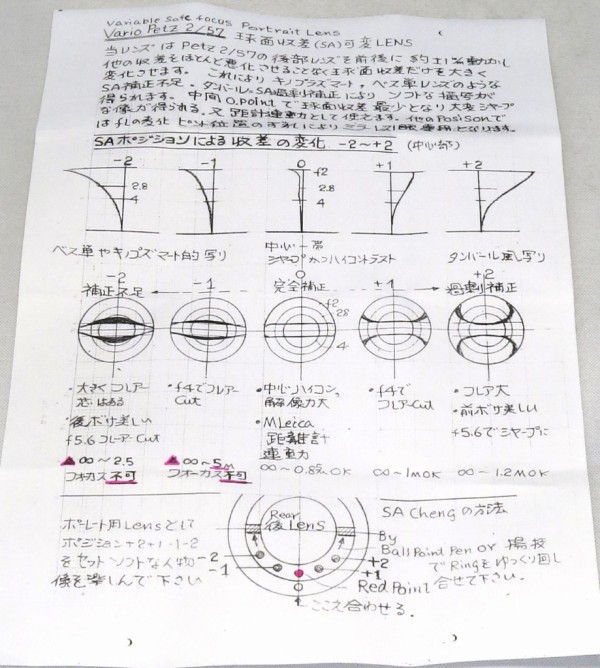 Variable Safe focus Portrait Lens
Vario Petz 2/57 球面収差(SA)可変LENS
当レンズは Petz 2/57の後部レンズを前後に約±1%動かし
他の収差をほとんど悪化させることなく球面収差だけを大きく
変化させます。これによりキノプラズマート,ベス単レンズのような
SA補正不足、タンバールのSA過剰補正によりソフトな描写が
得られます。中間0.pointで球面収差最少となり大変シャープ
な像が得られる。又距離計連動で使えます。他のPositionで
はflの変化 ピント位置のずれによりミラーレス専用となります。
SAポジションによる収差の変化 -2〜+2 (中心部)
-2 -1 0 +1 +2
f2
2.8 2.8
4 4
ベス単やキノプズマート的写り
中心一帯
シャープかつハイコントラスト
タンバール風写り
-2 -1 0 +1 +2
補正不足 完全補正 過剰補正
f2
2.8
4
・大きくフレアー
芯はある
・後ボケ美しい
f5.6 フレアーCut
・f4でフレアー
Cut
・中心ハイコン,
解像力大
・MLeica
距離計
連動力
・f4で
フレアーCut
・フレア大
・前ボケ美しい
f5.6でシャープに
▲∞〜2.5
フォーカス不可
▲∞〜5m
フォーカス不可
∞〜0.8m OK
∞〜1m OK
∞〜1.2m OK
ポートレート用Lensとして
ポジション+2+1-1-2
をセットソフトな人物
像を楽しんで下さい
Rear
後Lens
-2 +2
-1 +1
0
Red Point
ここえ合わせる.
SA Chengの方法
By
Ball Point Pen or 楊枝
でRingをゆっくり回し
合せて下さい.